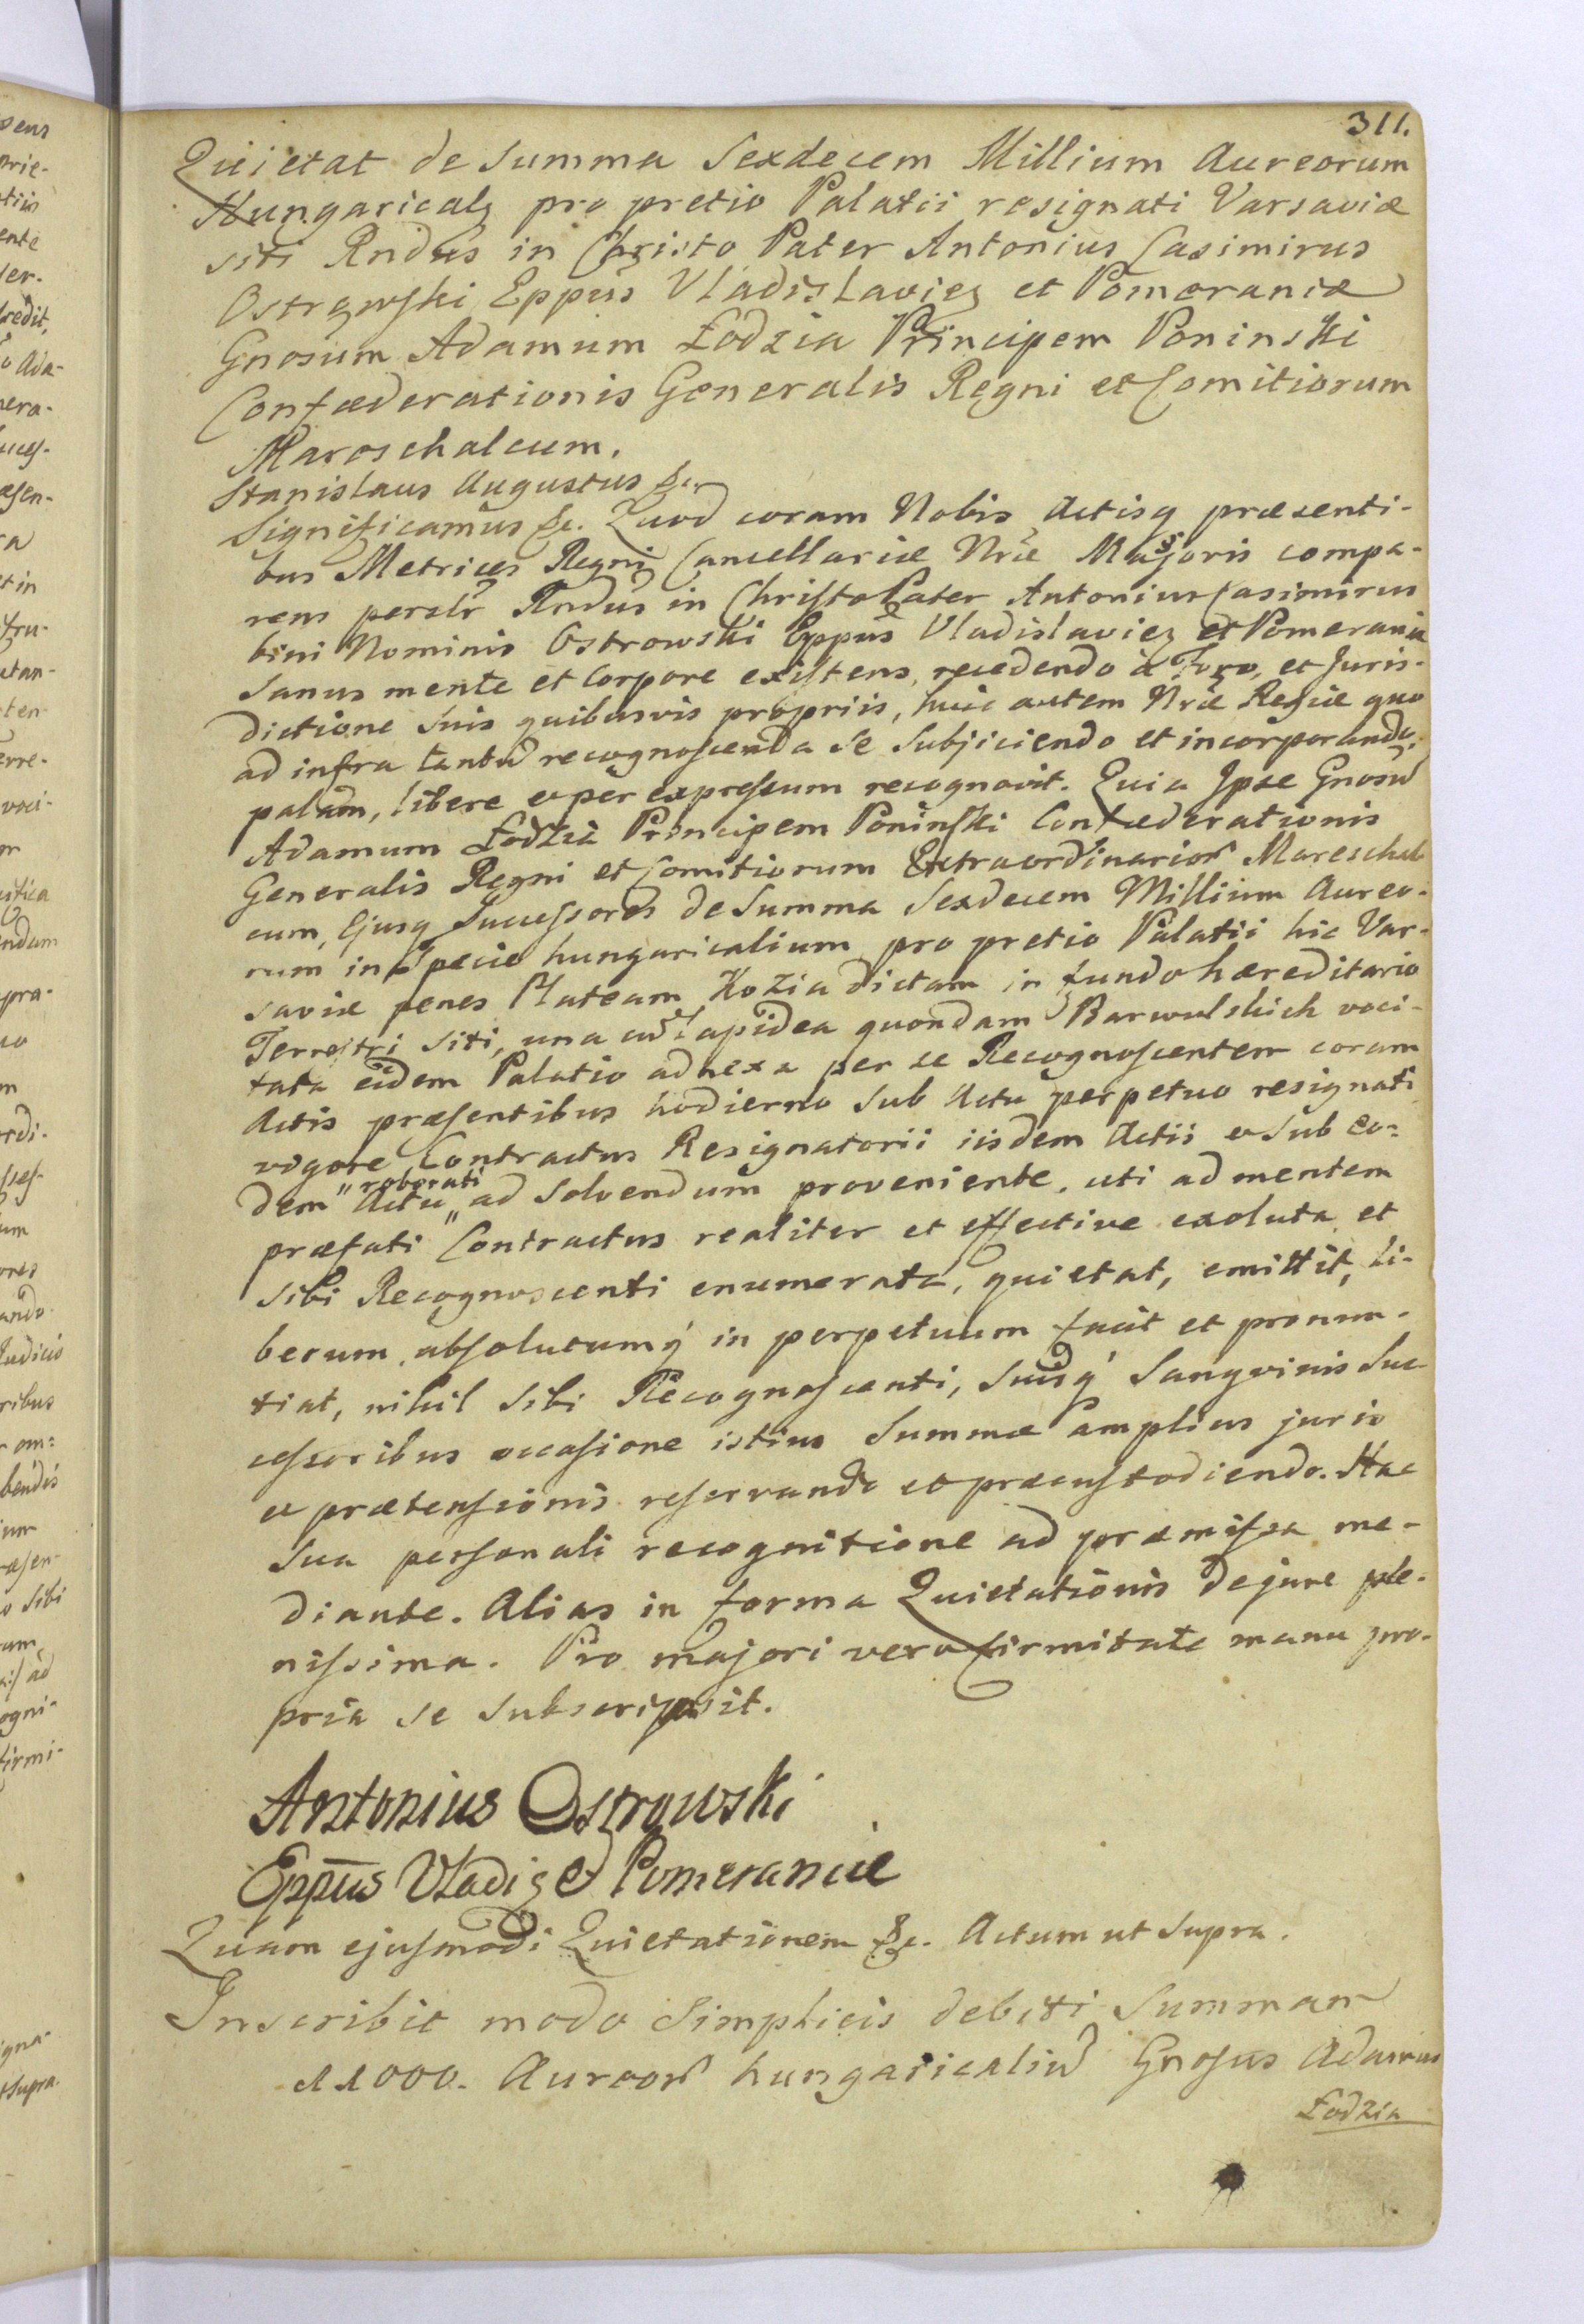 311.
Quietat de Summa Sexdecem Millium Aureorum
Hungaricalꝫ pro pretio Palatii resignati Varsaviæ
siti Rndus in Christo Pater Antonius Casimirus
Ostrowski Eppus Vladislavieꝫ et Pomeraniæ
Gnosum Adamum Łodzia Principem Poninski
Confæderationis Generalis Regni et Comitiorum
Mareschalcum.
Stanislaus Augustus &c.
Significamus &c. Quod coram Nobis Actisq præsenti-
bus Metrices Regni Cancellariæ Nræ Majoris compa-
rens persltr Rndus in Christo Pater Antonius Casimirus
bini Nominis Ostrowski Eppus Vladislavieꝫ et Pomerania
Sanus mente et Corpore existens, recedendo a Foro, et Juris-
dictione Suis quibusvis propriis, huic autem Nræ Regiæ quo
ad infra tantu recognoscenda Se Subjiciendo et incorporando,
palam, libere ac per expressum recognovit. Quia Ipse Gnosu
Adamum Łodzia Principem Poninski Confæderationis
Generalis Regni et Comitiorum Extraordinarior Mareschal-
cum, Ejusq Successores de Summa Sexdecem Millium Aureo-
rum in Specie hungaricalium pro pretio Palatii hic Var-
saviæ penes Plateam Kozia dictam in fundo hæreditario
Terrestri siti, una cu Lapidea quondam Barwulskich voci-
tata eidem Palatio adnexa per se Recognoscentem coram
Actis præsentibus hodierno Sub Actu perpetuo resignati
vigore Contractus Resignatorii iisdem Actis et Sub eo-
roborati
dem " Actu " ad Solvendum proveniente, uti ad mentem
præfati Contractus realiter et effective exoluta et
sibi Recognoscenti enumerata, quietat, emittit, li-
berum, absolutumq in perpetuum facit et pronun-
tiat, nihil Sibi Recognoscenti, Suisq Sangvinis Suc
cessoribus occasione istius Summæ amplius juris
et prætensionis reservando et præcustodiendo. Hac
Sua personali recognitione ad præmissa me-
diante. Alias in forma Quietationis de jure ple-
nissima. Pro majori vero firmitate manu pro-
pria se Subscripsit.
Antonius Ostrowski
Eppus Vladiꝫ et Pomeraniæ
Quam ejusmodi Quietationem &c. Actum ut Supra.
Inscribit modo Simplicis debiti Summam
11000. Aureor hungaricaliu Gnosus Adamus
Łodzia